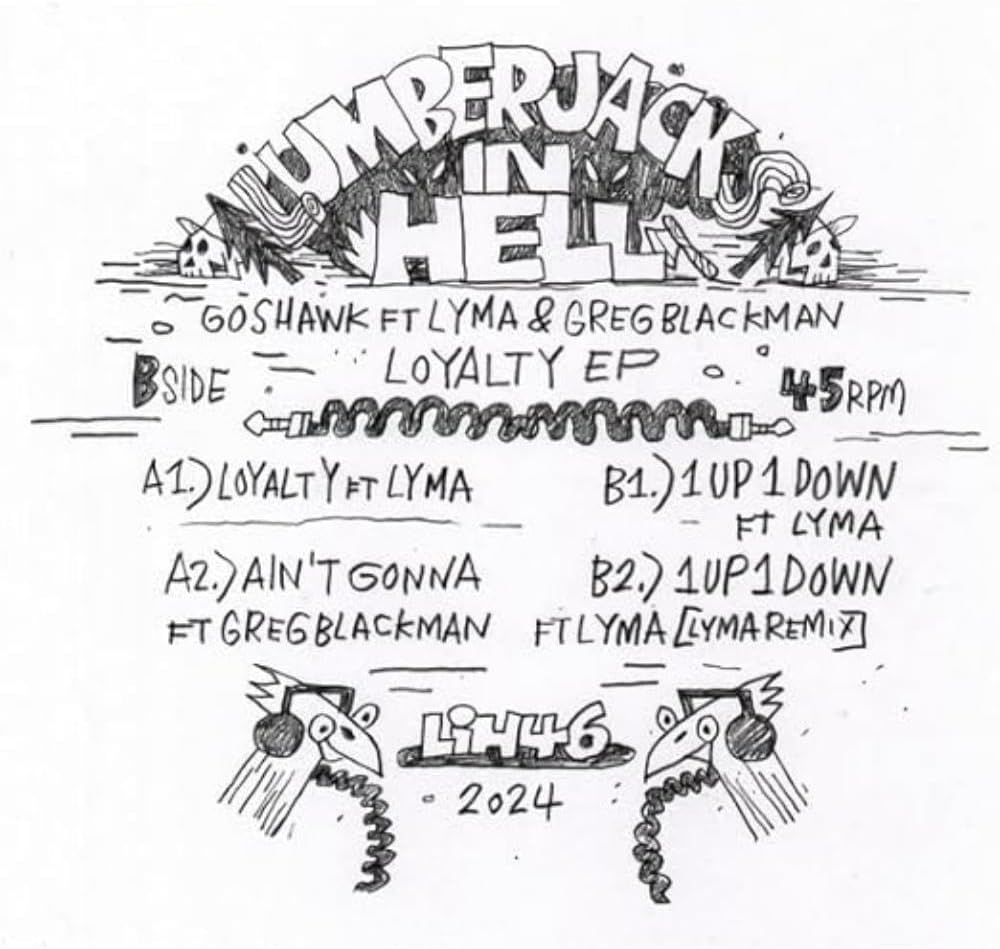 LUMBERJACKS
IN
HELL
GOSHAWK FT LYMA & GREG BLACKMAN
LOYALTY EP
B SIDE
45 RPM
A1.) LOYALTY FT LYMA
B1.) 1 UP 1 DOWN
FT LYMA
A2.) AIN'T GONNA
FT GREG BLACKMAN
B2.) 1 UP 1 DOWN
FT LYMA [LYMA REMIX]
LiH46
2024